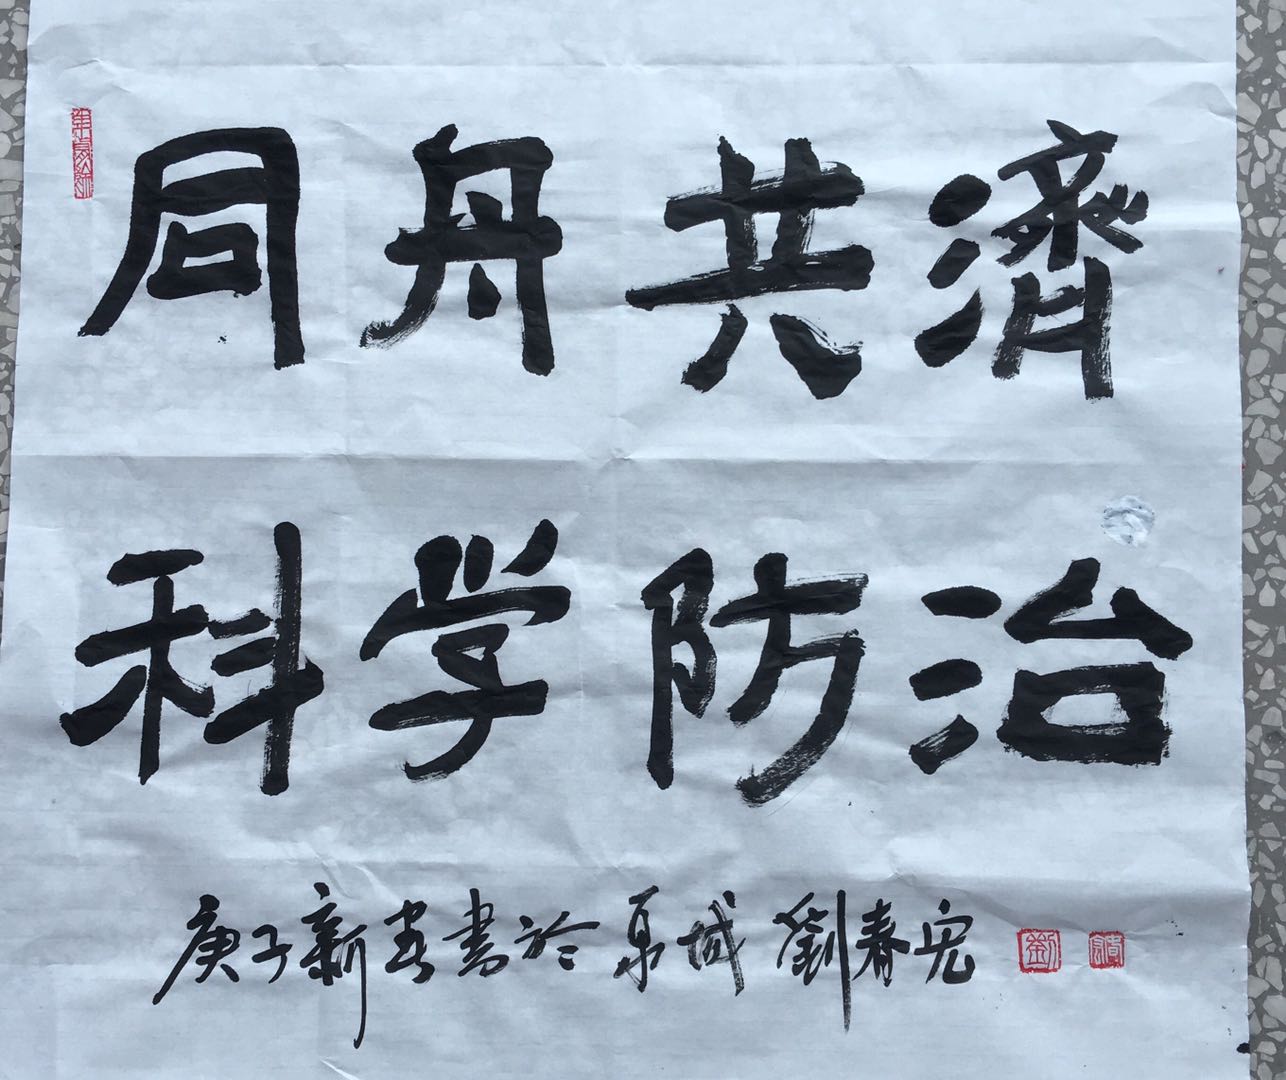 同舟共濟
科学防治
庚子新春書於京城 劉春宏